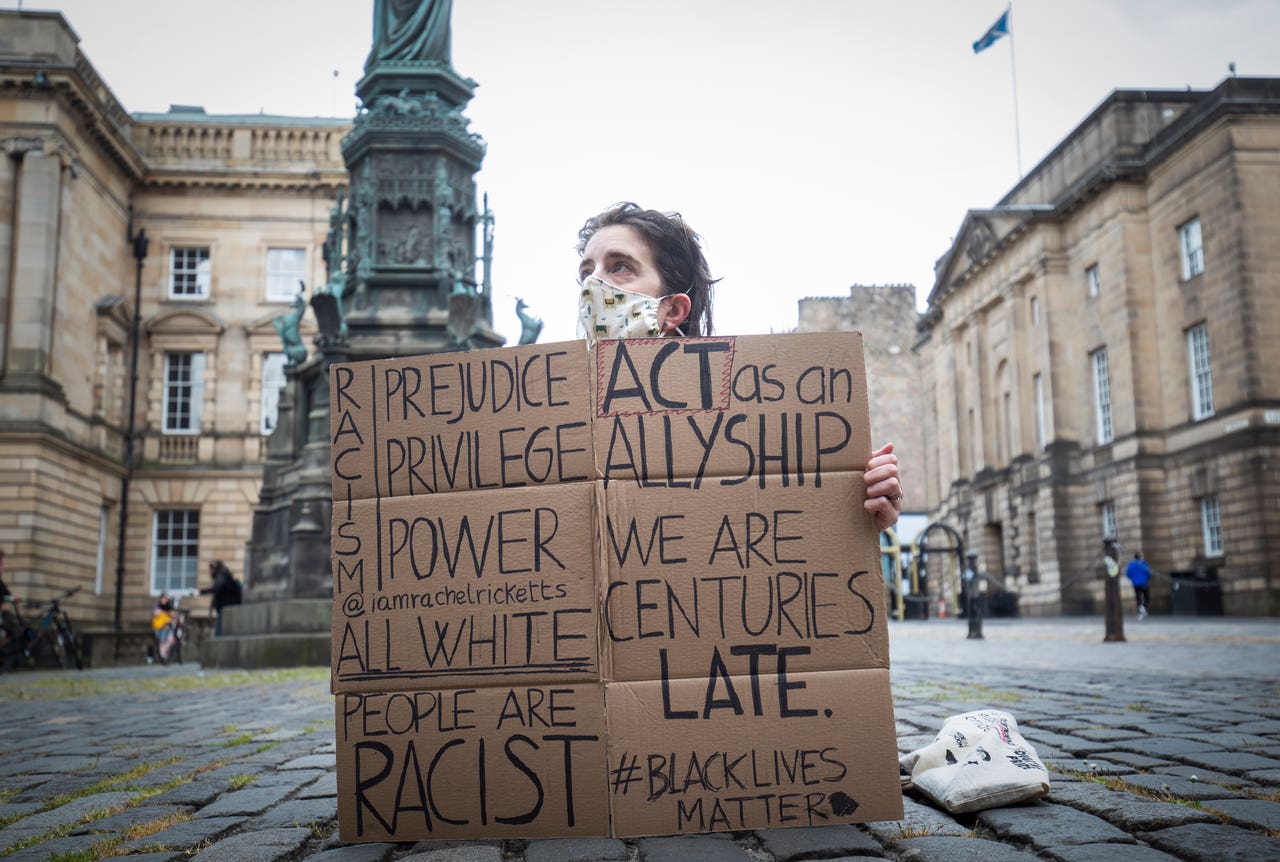 RACISM
PREJUDICE
PRIVILEGE
POWER
@iamrachelricketts
ALL WHITE
PEOPLE ARE
RACIST
ACT as an
ALLYSHIP
WE ARE
CENTURIES
LATE.
#BLACKLIVES
MATTER